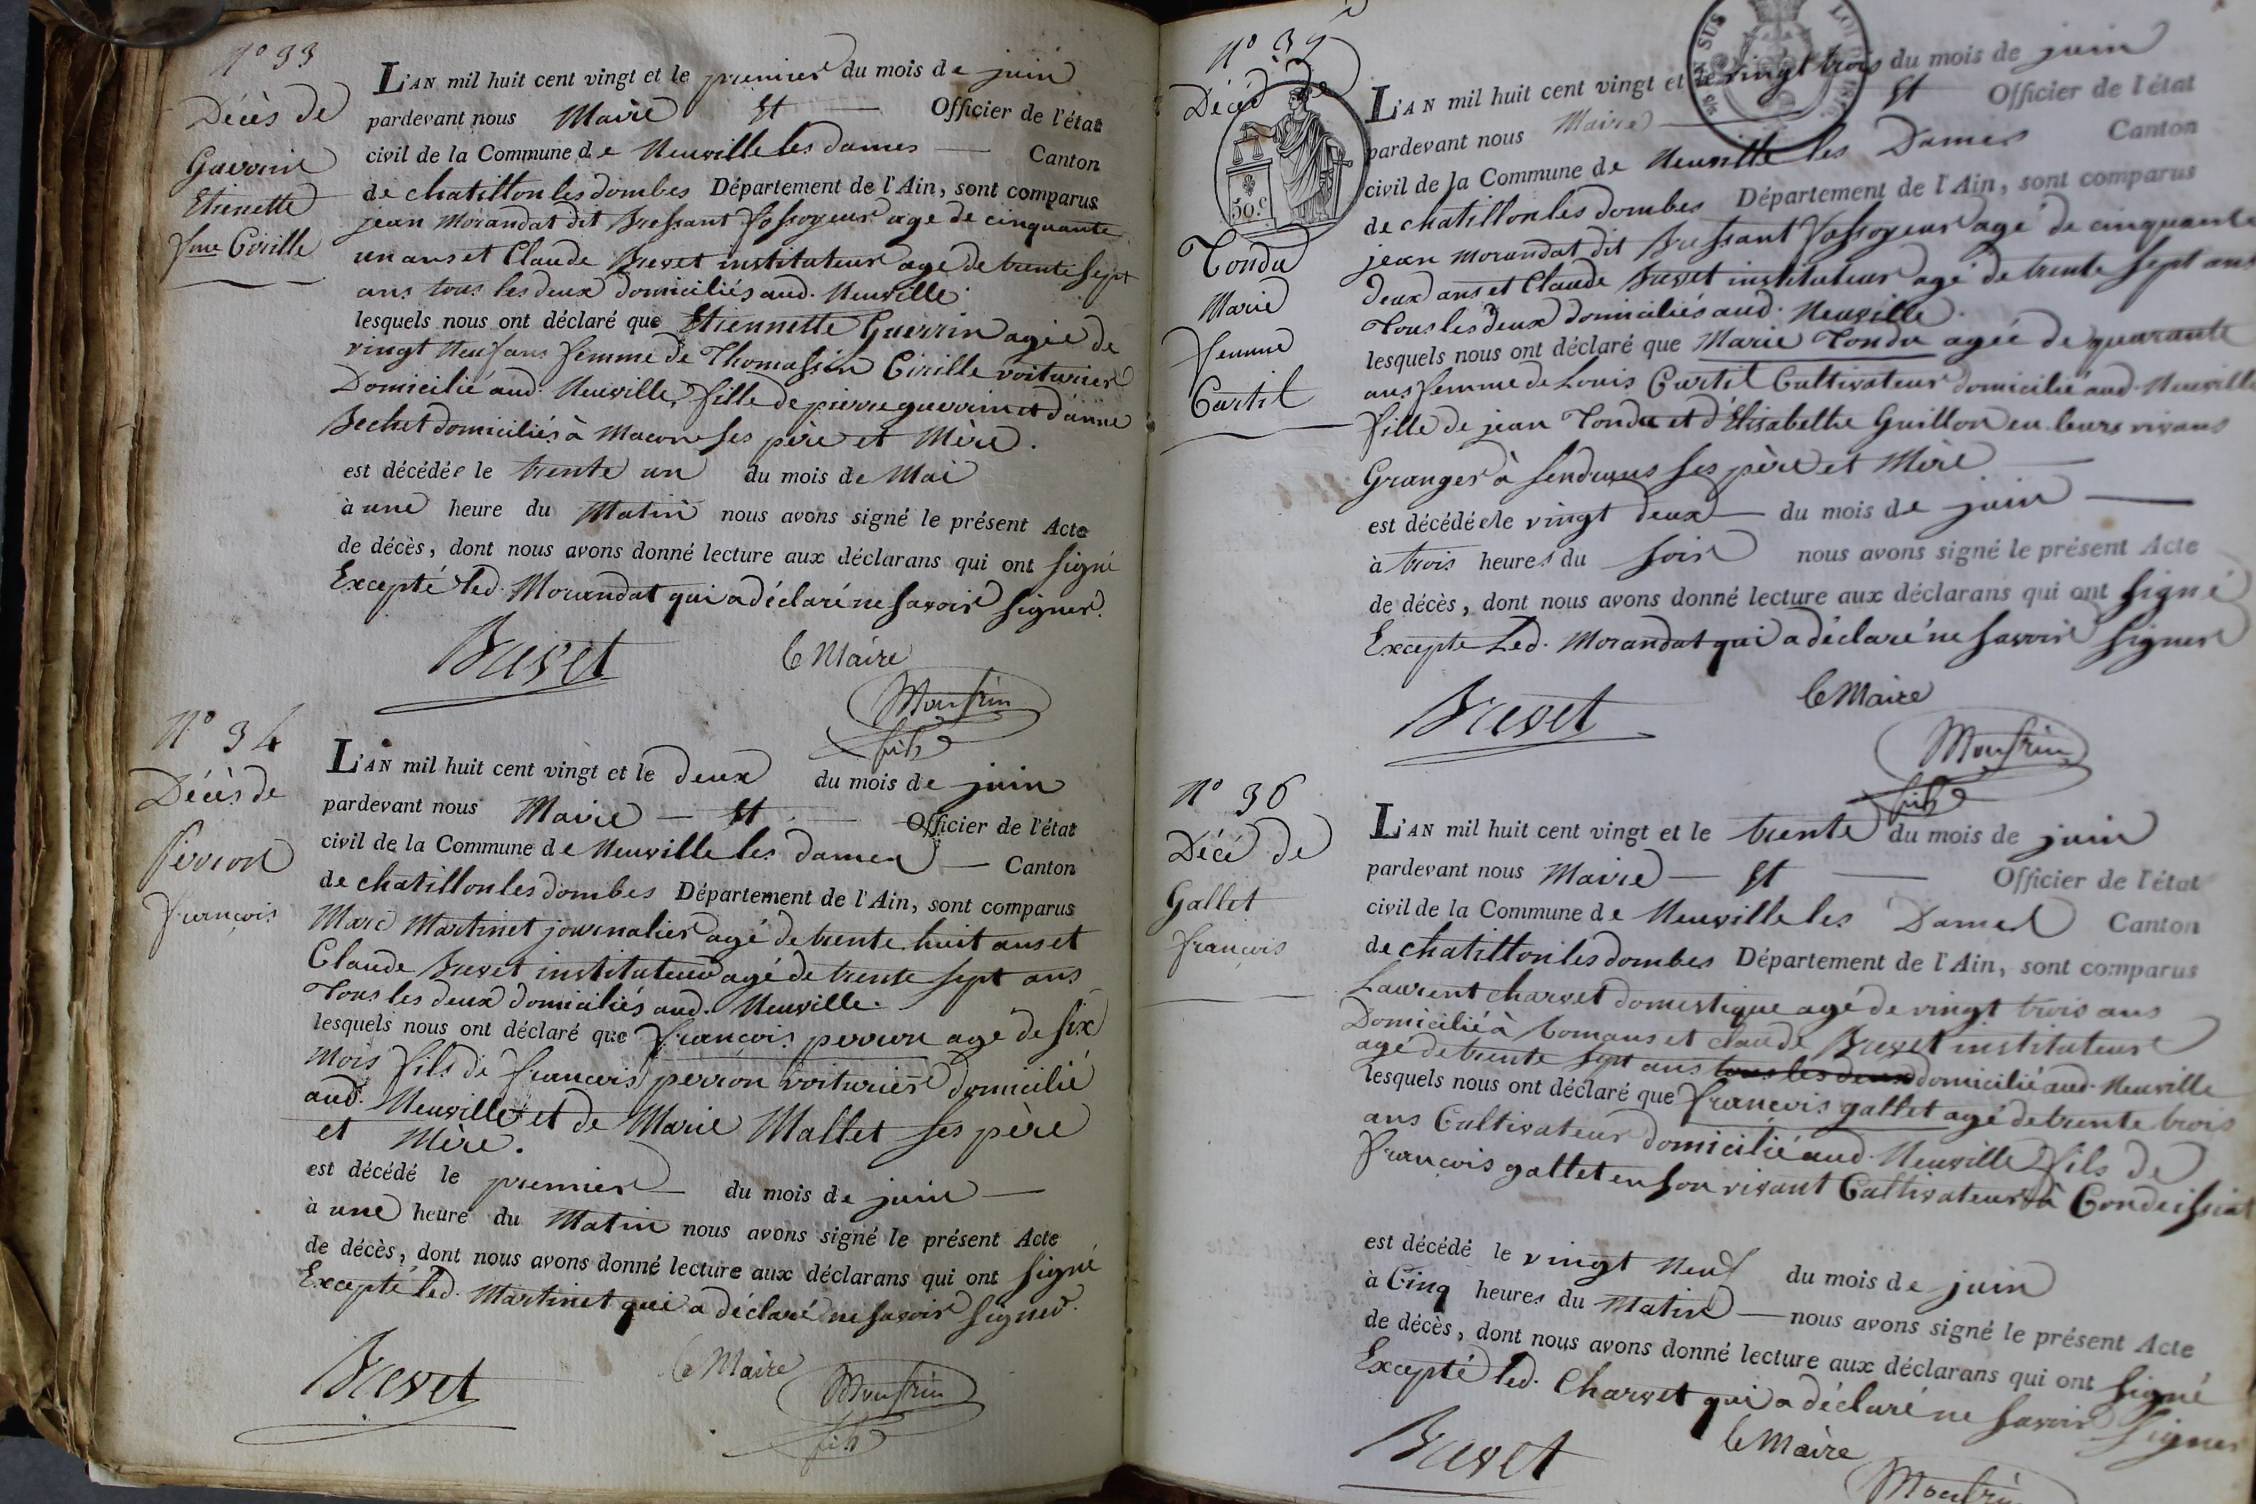 N° 33
Décès de
Guerrin
Etienette
fme Cirille
L'AN mil huit cent vingt et le premier du mois de juin
pardevant nous Maire et Officier de l'état
civil de la Commune de Neuville les dames Canton
de chatillon les dombes Département de l'Ain, sont comparus
jean Morandat dit Bressant fossoyeur agé de cinquante
un ans et Claude Brevet instituteur agé de trente sept
ans tous les deux domiciliés aud. Neuville.
lesquels nous ont déclaré que Etiennette Guerrin agée de
vingt neuf ans femme de Thomassin Cirille voiturier
Domicilié aud. Neuville, fille de pierre guerrin et d'anne
Bechet domiciliés à Macon ses père et Mère.
est décédée le trente un du mois de Mai
à une heure du Matin nous avons signé le présent Acte
de décès, dont nous avons donné lecture aux déclarans qui ont signé
Excepté led. Morandat qui a déclaré ne savoir signer.
Brevet le Maire
Monfrin
fils
N° 34
Décès de
perron
françois
L'AN mil huit cent vingt et le deux du mois de juin
pardevant nous Maire et Officier de l'état
civil de la Commune de Neuville les dames Canton
de chatillon les dombes Département de l'Ain, sont comparus
Marc Martinet journalier agé de trente huit ans et
Claude Brevet instituteur agé de trente sept ans
Tous les deux domiciliés aud. Neuville.
lesquels nous ont déclaré que françois perron agé de six
Mois fils de françois perron voiturier domicilié
aud. Neuville et de Marie Mallet ses père
et Mère.
est décédé le premier du mois de juin
à une heure du Matin nous avons signé le présent Acte
de décès, dont nous avons donné lecture aux déclarans qui ont signé
Excepté led. Martinet qui a déclaré ne savoir signer.
Brevet le Maire
Monfrin
fils
N° 35
Décéd
50.c
Tondu
Marie
femme
Curtil
L'AN mil huit cent vingt et le vingt trois du mois de juin
pardevant nous Maire et Officier de l'état
civil de la Commune de Neuville les Dames Canton
de chatillon les dombes Département de l'Ain, sont comparus
jean Morandat dit Bressant fossoyeur agé de cinquante
deux ans et Claude Brevet instituteur agé de trente sept ans
Tous les deux domiciliés aud. Neuville.
lesquels nous ont déclaré que Marie Tondu agée de quarante
ans femme de Louis Curtil Cultivateur domicilié aud. Neuville
fille de jean Tondu et d'Elisabethe Guillon en leurs vivans
Granger à Sendrans ses père et Mère
est décédée le vingt deux du mois de juin
à trois heures du soir nous avons signé le présent Acte
de décès, dont nous avons donné lecture aux déclarans qui ont signé
Excepte Led. Morandat qui a déclaré ne savoir signer
Brevet le Maire
Monfrin
fils
N° 36
Décé de
Gallet
françois
L'AN mil huit cent vingt et le trente du mois de juin
pardevant nous Maire et Officier de l'état
civil de la Commune de Neuville les Dames Canton
de chatillon les dombes Département de l'Ain, sont comparus
Laurent charvet domestique agé de vingt trois ans
Domicilié à Romans et claude Brevet instituteur
agé de trente sept ans tous les deux domicilié aud. Neuville
lesquels nous ont déclaré que françois gallet agé de trente trois
ans Cultivateur domicilié aud. Neuville fils de
françois gallet en son vivant Cultivateur à Condeissiat
est décédé le vingt neuf du mois de juin
à Cinq heures du Matin nous avons signé le présent Acte
de décès, dont nous avons donné lecture aux déclarans qui ont signé
Excepté led. Charvet qui a déclaré ne savoir signer
Brevet le Maire
Monfrin